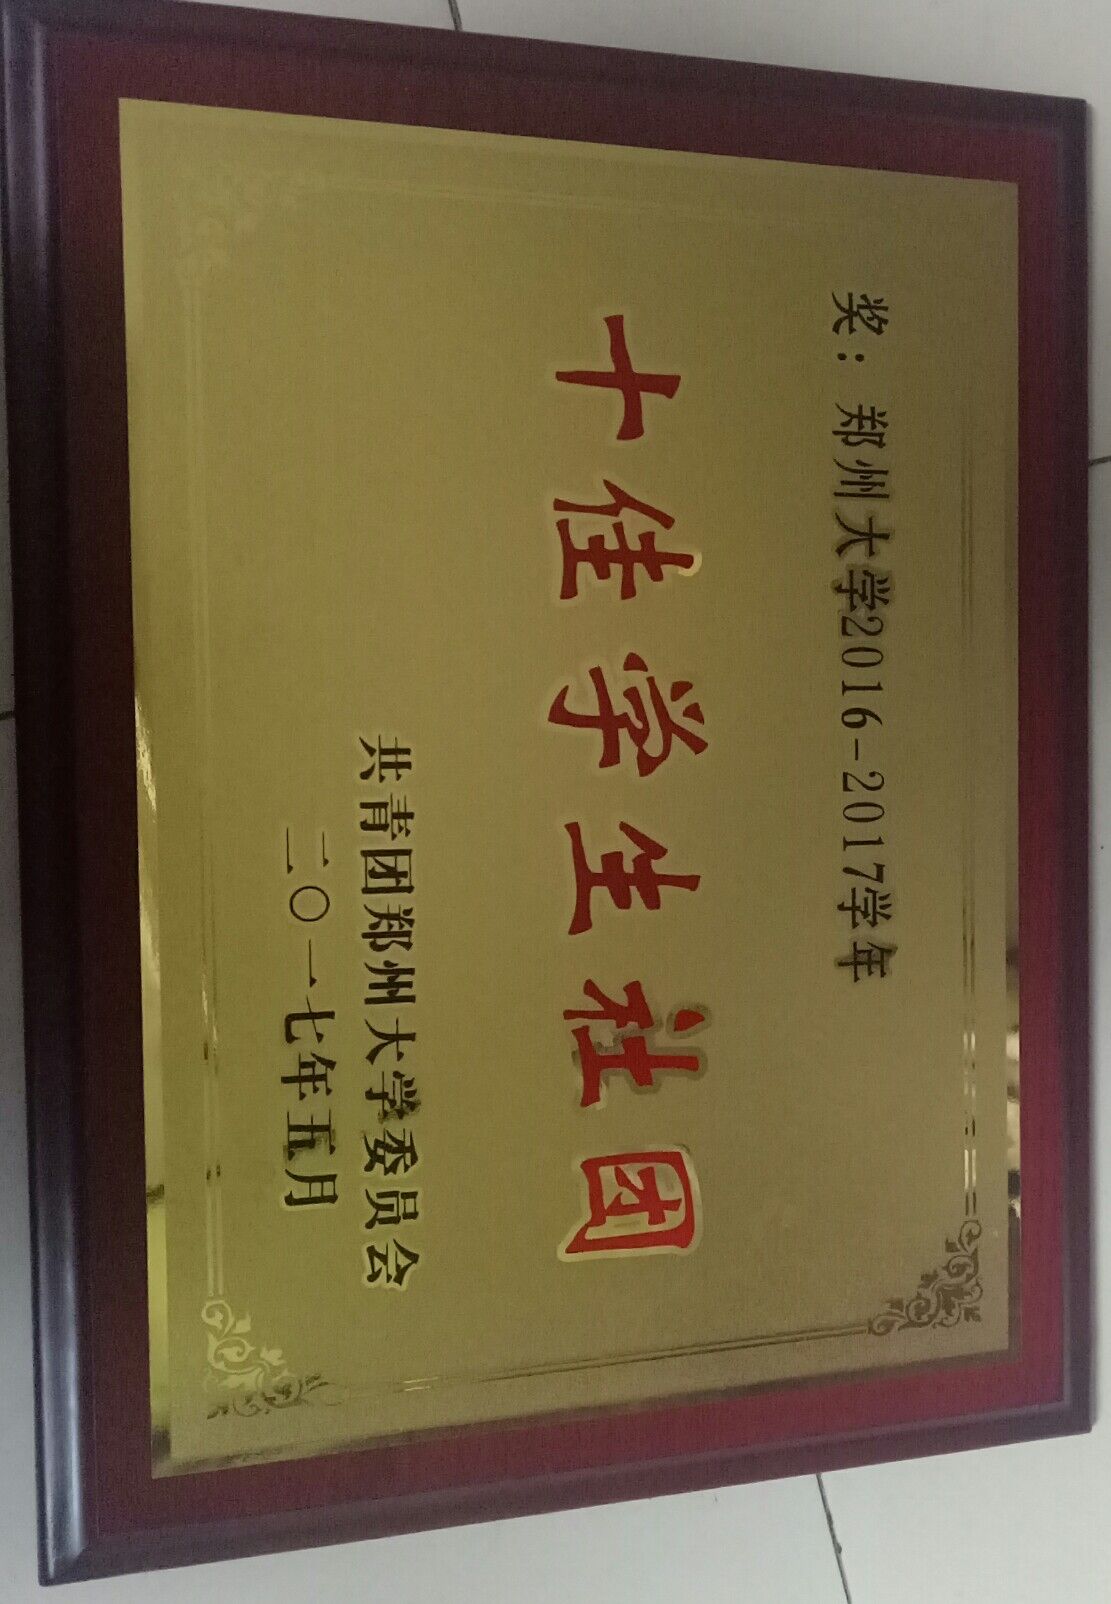 奖：郑州大学2016-2017学年
十佳学生社团
共青团郑州大学委员会
二〇一七年五月